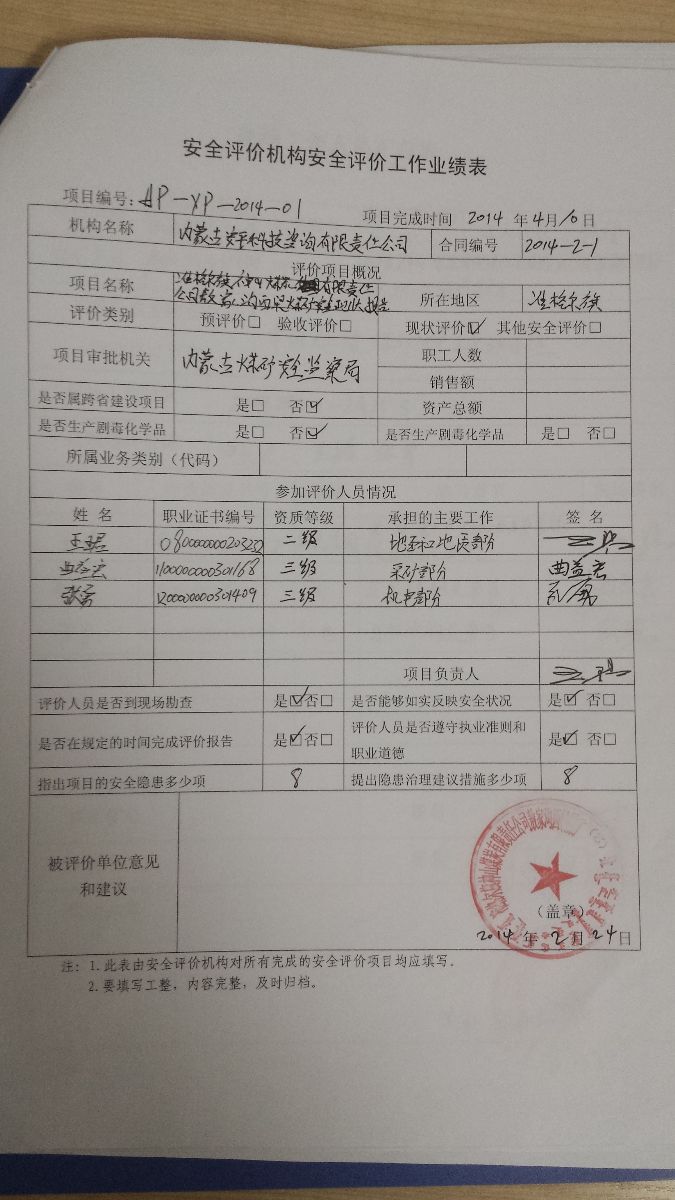 安全评价机构安全评价工作业绩表
项目编号：AP-XP-2014-01
项目完成时间 2014 年 4 月 10 日
机构名称 内蒙古安平科技咨询有限责任公司 合同编号 2014-2-1
评价项目概况
项目名称 准格尔旗 有限责任 公司 煤矿安全现状报告 所在地区 准格尔旗
评价类别 预评价□ 验收评价□ 现状评价☑ 其他安全评价□
项目审批机关 内蒙古煤矿安全监察局 职工人数
销售额
是否属跨省建设项目 是□ 否☑ 资产总额
是否生产剧毒化学品 是□ 否☑ 是否生产剧毒化学品 是□ 否□
所属业务类别（代码）
参加评价人员情况
姓 名 职业证书编号 资质等级 承担的主要工作 签 名
王珺 0800000000203232 二级 地质部分
曲益宏 1100000000301168 三级 采矿部分 曲益宏
张勇 1200000000301409 三级 机电部分
项目负责人
评价人员是否到现场勘查 是☑否□ 是否能够如实反映安全状况 是☑ 否□
是否在规定的时间完成评价报告 是☑否□ 评价人员是否遵守执业准则和
职业道德 是☑ 否□
指出项目的安全隐患多少项 8 提出隐患治理建议措施多少项 8
被评价单位意见
和建议
（盖章）
2014 年 2 月 24 日
注：1.此表由安全评价机构对所有完成的安全评价项目均应填写。
2.要填写工整，内容完整，及时归档。